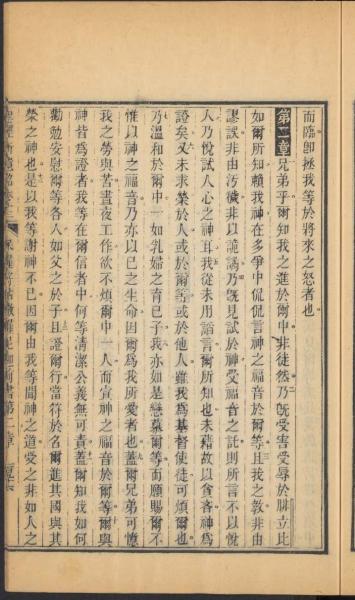 而臨卽拯我等於將來之怒者也
第二章兄弟乎爾知我之進於爾中非徒然乃旣受害受辱於腓立比
如爾所知賴我神在多爭中侃侃言神之福音於爾等且我之教非由
謬誤非由汚穢非以詭譎乃旣見試於神受福音之託則所言不以悅
人乃悅試人心之神耳我從未用諂言爾所知也未藉故以貪吝神爲
證矣又未求榮於人或於爾等或於他人雖我爲基督使徒可煩爾也
乃溫和於爾中一如乳婦之育已子我亦如是戀慕爾等而願賜爾不
惟以神之福音乃亦以已之生命因爾爲我所愛者也蓋爾兄弟可憶
我之勞與苦晝夜工作欲不煩爾中一人而宣神之福音於爾等爾與
神皆爲證者我等在爾信者中何等清潔公義無可責蓋爾知我如何
勸勉安慰爾等各人如父之於子且證爾行當符於召爾進其國與其
榮之神也是以我等謝神不已因爾由我等聞神之道受之非如人之